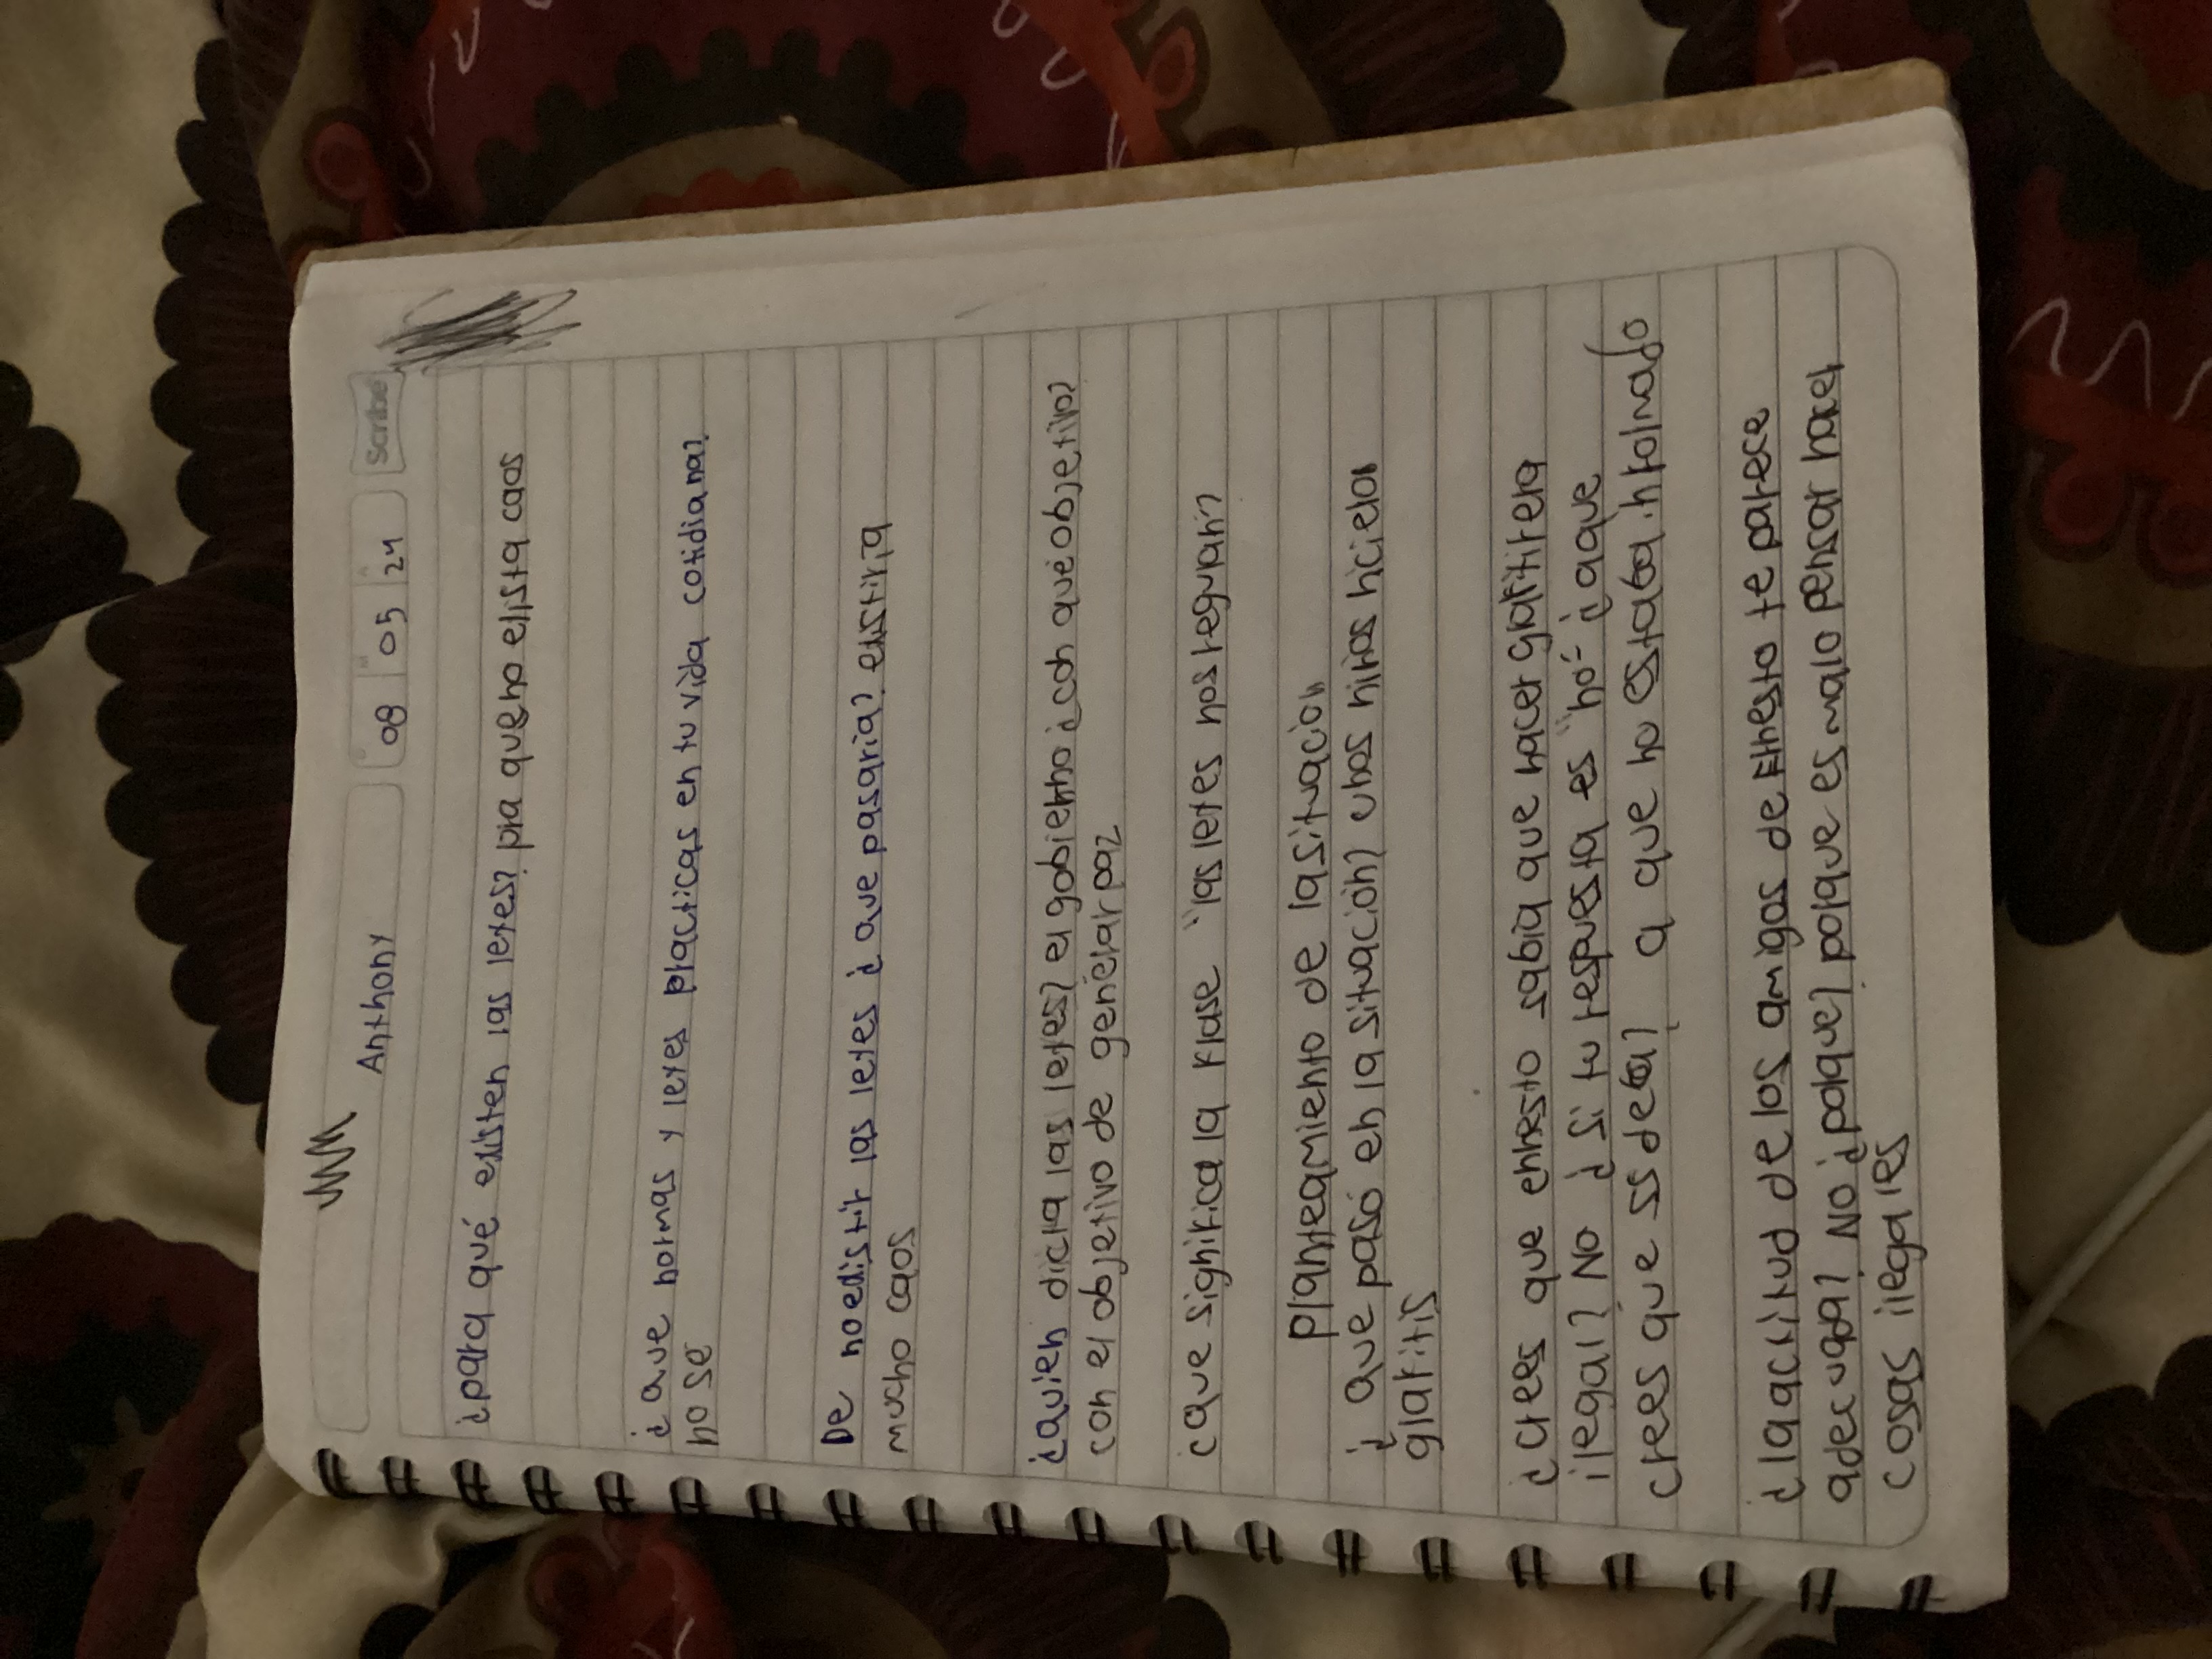 Anthony
08 05 24
Scribe
¿para qué existen las leyes? pra que no elista caos
¿que normas y leyes placticas en tu vida cotidiana?
no se
De no existir las leyes ¿que pasaria? existiria
mucho caos
¿quien dicta las leyes? el gobierno ¿con que objetivo?
con el objetivo de genelar paz
¿que significa la frase "las leyes nos regulan?
planteamiento de la situacion
¿que pasó en la situación? unos niños hicielon
glafitis
¿cres que enesto sabia que hacer glafitiera
ilegal? No ¿si tu respuesta es "no" ¿aque
crees que ss deba? a que no estaba infolmado
¿la actitud de los amigos de Ernesto te parece
adecuada? No ¿polque? polque es malo pensar hacer
cosas ilegales